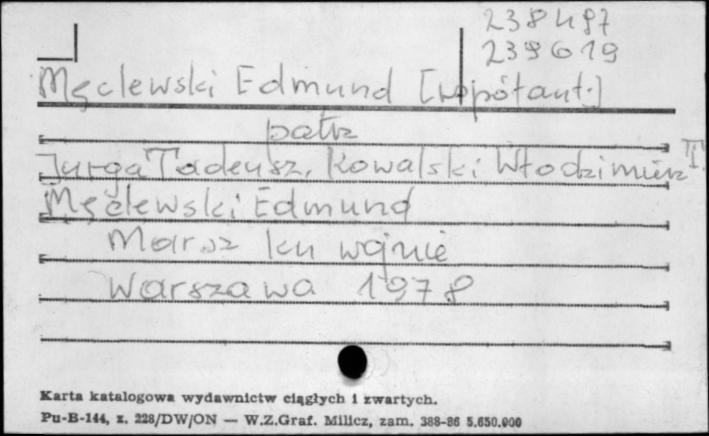 238487
239619
Męclewski Edmund [współaut.]
patrz
Jurga Tadeusz, Kowalski Włodzimierz T.
Męclewski Edmund
Marsz ku wojnie
Warszawa 1978
Karta katalogowa wydawnictw ciągłych i zwartych.
Pu-B-144, z. 228/DW/ON — W.Z.Graf. Milicz, zam. 388-86 5.650.000